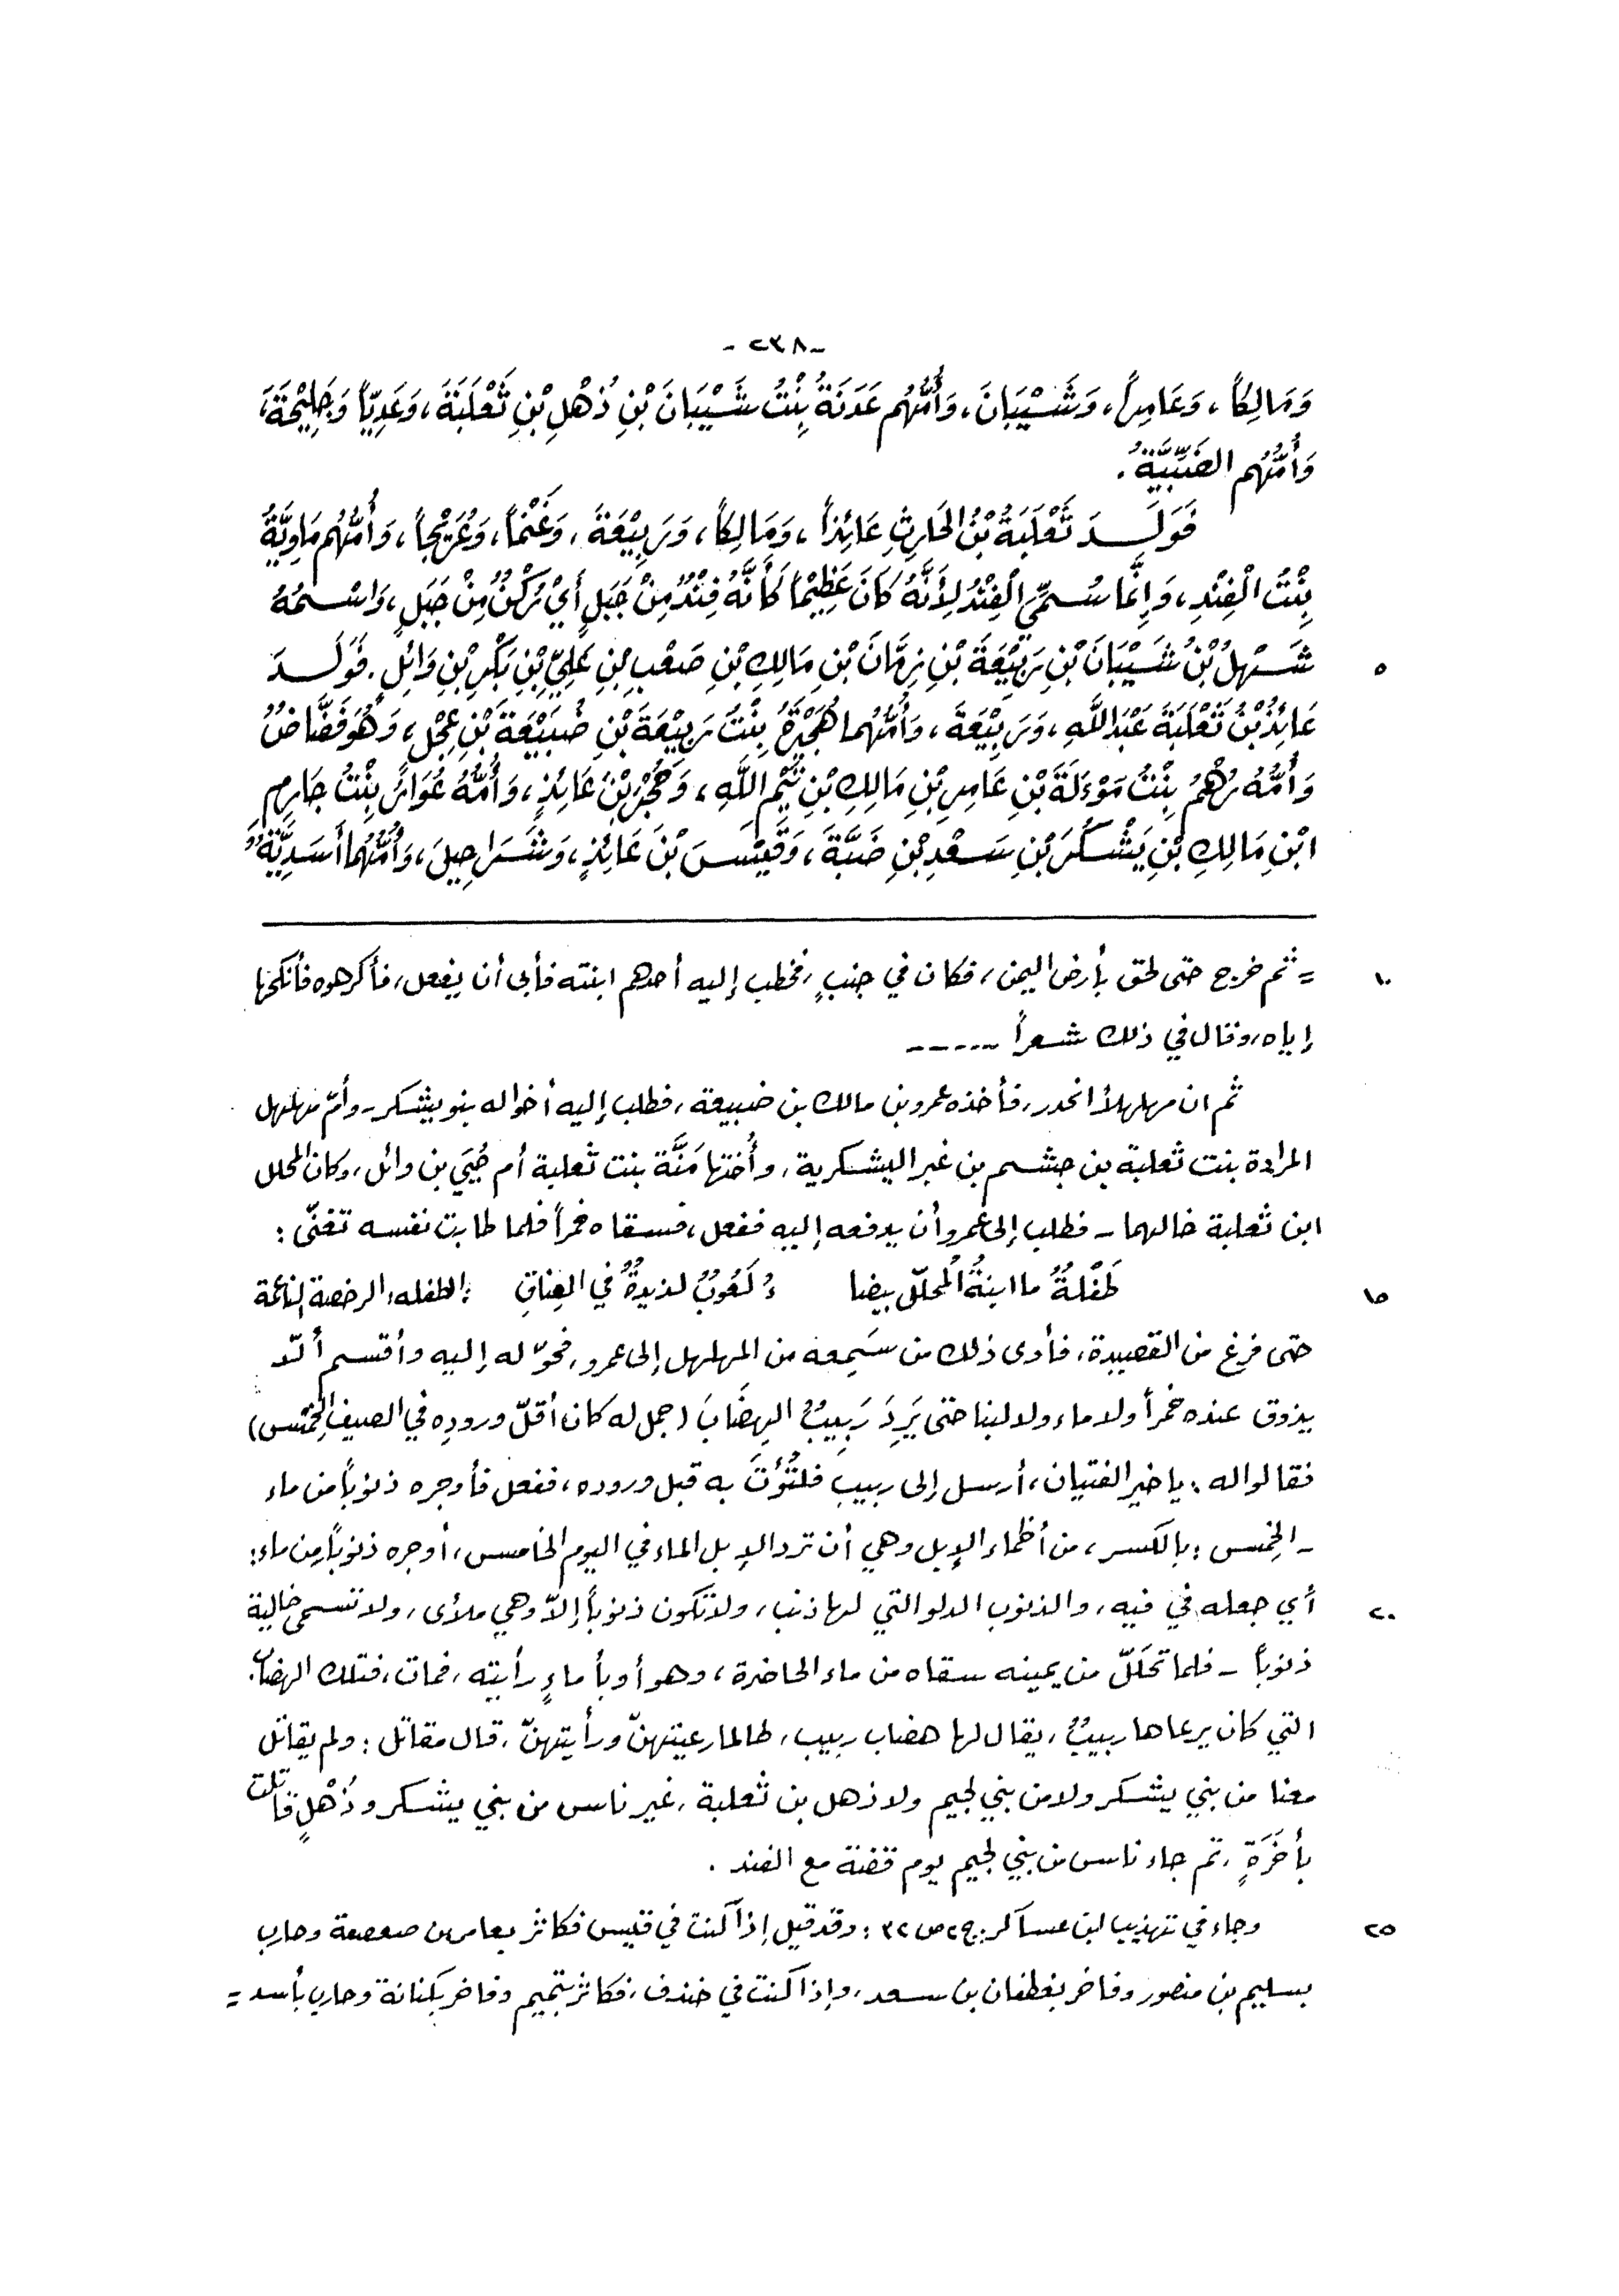 -٢٣٨-
وَمَالِكاً، وَعَامِراً، وَشَيْبَانَ، وَأُمُّهُم عَدَنَةُ بِنْتُ شَيْبَانَ بْنِ ذُهْلِ بْنِ ثَعْلَبَةَ، وَعَدِيّاً وَجَلِيْحَةَ،
وَأُمُّهُم الضَّبِّيَّةُ.
فَوَلَدَ ثَعْلَبَةُ بْنُ الحَارِثِ عَائِذاً، وَمَالِكاً، وَرَبِيْعَةَ، وَغَنْماً، وَعُرَيْجاً، وَأُمُّهُم مَاوِيَّةُ
بِنْتُ الْفِنْدِ، وَإِنَّمَا سُمِّيَ الْفِنْدُ لِأَنَّهُ كَانَ عَظِيْماً كَأَنَّهُ فِنْدٌ مِنْ جَبَلٍ أَيْ رُكْنٌ مِنْ جَبَلٍ، وَاسْمُهُ
شَهْلُ بْنُ شَيْبَانَ بْنِ رَبِيْعَةَ بْنِ زِمَّانَ بْنِ مَالِكِ بْنِ صَعْبِ بْنِ عَلِيِّ بْنِ بَكْرِ بْنِ وَائِلٍ. فَوَلَدَ
٥
عَائِذُ بْنُ ثَعْلَبَةَ عَبْدَ اللَّهِ، وَرَبِيْعَةَ، وَأُمُّهُما هُجَيْرَةُ بِنْتُ رَبِيْعَةَ بْنِ ضُبَيْعَةَ بْنِ عِجْلٍ، وَهُوَ فَضَّاضٌ
وَأُمُّهُ رُهْمُ بِنْتُ مَوْءَلَةَ بْنِ عَامِرِ بْنِ مَالِكِ بْنِ تَيْمِ اللَّهِ، وَحُجْرَ بْنَ عَائِذٍ، وَأُمُّهُ عُوَارُ بِنْتُ جَارِمِ
ابْنِ مَالِكِ بْنِ يَشْكُرَ بْنِ سَعْدِ بْنِ ضَبَّةَ، وَقَيْسَ بْنَ عَائِذٍ، وَشَرَاحِيلَ، وَأُمُّهُما أَسَدِيَّةٌ،
= ثم خرج حتى لحق بأرض اليمن، فكان في جنبٍ، فخطب إليه أحدهم ابنته فأبى أن يفعل، فأكرهوه فأنكحها
١٠
إياه، وقال في ذلك شعراً ------
ثم ان مهلهلاً انحدر، فأخذه عمرو بن مالك بن ضبيعة، فطلب إليه أخواله بنو يشكر - وأمّ مهلهل
المرادة بنت ثعلبة بن جشم بن غبر اليشكرية، وأُختها مَنَّة بنت ثعلبة أم حُيَي بن وائل، وكان المحلل
ابن ثعلبة خالهما - فطلب إلى عمرو أن يدفعه إليه ففعل، فسقاه خمراً فلما طابت نفسه تغنّى:
طَفْلةٌ ما ابنةُ المُحلّل بيضا ءُ لَعُوبٌ لذيذةٌ في العِناقِ :الطفله: الرخصة الناعمة
١٥
حتى فرغ من القصيدة، فأدى ذلك من سَمِعه من المهلهل إلى عمرو، فحوّله إليه وأقسم ألّا
يذوق عنده خمراً ولا ماء ولا لبنا حتى يَرِدَ رَبِيبٌ الهِضَابَ (جمل له كان أقلّ ورودِه في الصيف الخِمْس)
فقالوا له: يا خير الفتيان، أرسل إلى ربيبٍ فلتُؤْتَ به قبل وروده، ففعل فأوجره ذنوباً من ماء
- الخِمس: بالكسر، من أظماء الإبل وهي أن ترد الإبل الماء في اليوم الخامس، أوجره ذنوباً مِن ماء:
أي جعله في فيه، والذنوب الدلو التي لها ذنب، ولا تكون ذنوباً إلاّ وهي ملأى، ولا تسمى خالية
٢٠
ذنوباً - فلما تحَلّل من يمينه سقاه من ماء الحاضرة، وهو أوبأ ماءٍ رأيته، فمات، فتلك الهضاب
التي كان يرعاها ربيبٌ، يقال لها هضاب ربيب، طالما رعيتهنّ ورأيتهنّ، قال مقاتل: ولم يقاتل
معنا من بني يشكر ولا من بني لجيم ولا ذهل بن ثعلبة، غير ناس من بني يشكر وذُهْلٍ قاتلت
بأخَرَةٍ، ثم جاء ناس من بني لجيم يوم قضة مع الفند.
وجاء في تهذيب ابن عساكر: ج٢ ص ٣٢: وقد قيل إذا كنت في قيس فكاثر بعامر بن صعصعة وحارب
٢٥
بسليم بن منصور وفاخر بغطفان بن سعد، وإذا كنت في خندف، فكاثر بتميم وفاخر بكنانة وحارب بأسد =